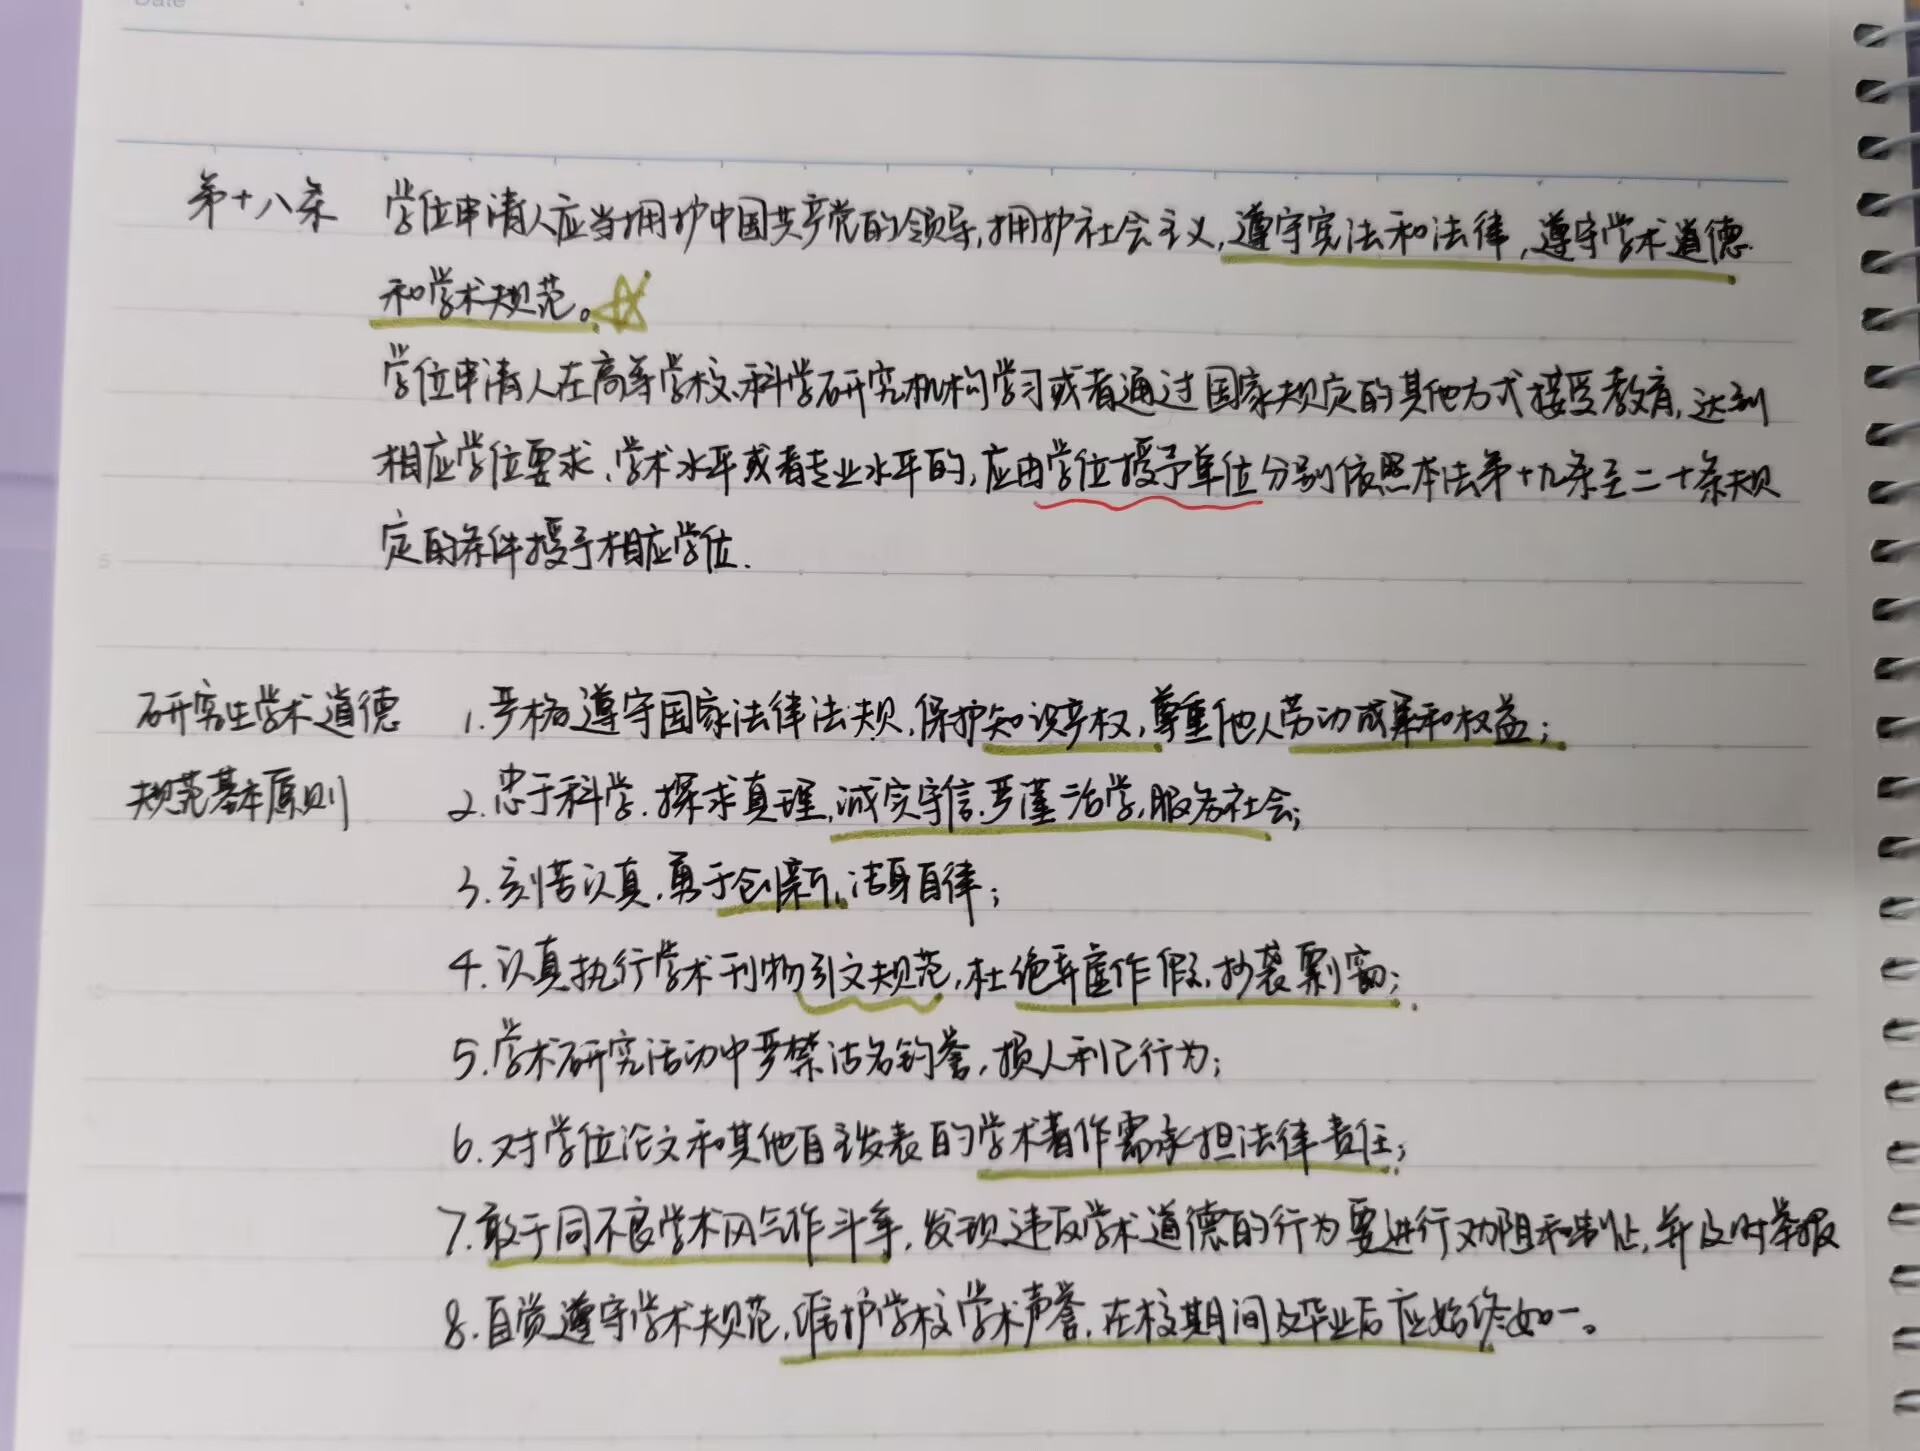 Date
第十八条 学位申请人应当拥护中国共产党的领导,拥护社会主义,遵守宪法和法律,遵守学术道德
和学术规范。
学位申请人在高等学校、科学研究机构学习或者通过国家规定的其他方式接受教育,达到
相应学位要求、学术水平或者专业水平的,应由学位授予单位分别依照本法第十九条至二十条规
定的条件授予相应学位.
5
研究生学术道德 1.严格遵守国家法律法规,保护知识产权,尊重他人劳动成果和权益;
规范基本原则 2.忠于科学.探求真理,诚实守信.严谨治学,服务社会;
3.刻苦认真.勇于创新,洁身自律;
4.认真执行学术刊物引文规范,杜绝弄虚作假,抄袭剽窃;
10
5.学术研究活动中严禁沽名钓誉,损人利己行为;
6.对学位论文和其他自主发表的学术著作需承担法律责任;
7.敢于同不良学术风气作斗争,发现违反学术道德的行为要进行劝阻和制止,并及时举报
8.自觉遵守学术规范,维护学校学术声誉,在校期间及毕业后应始终如一。
15